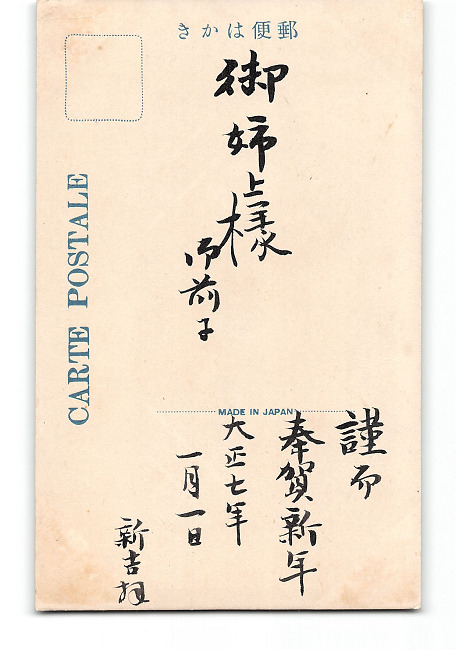 きかは便郵
御姉上様
御前に
CARTE POSTALE
MADE IN JAPAN
謹而
奉賀新年
大正七年
一月一日
新吉拝